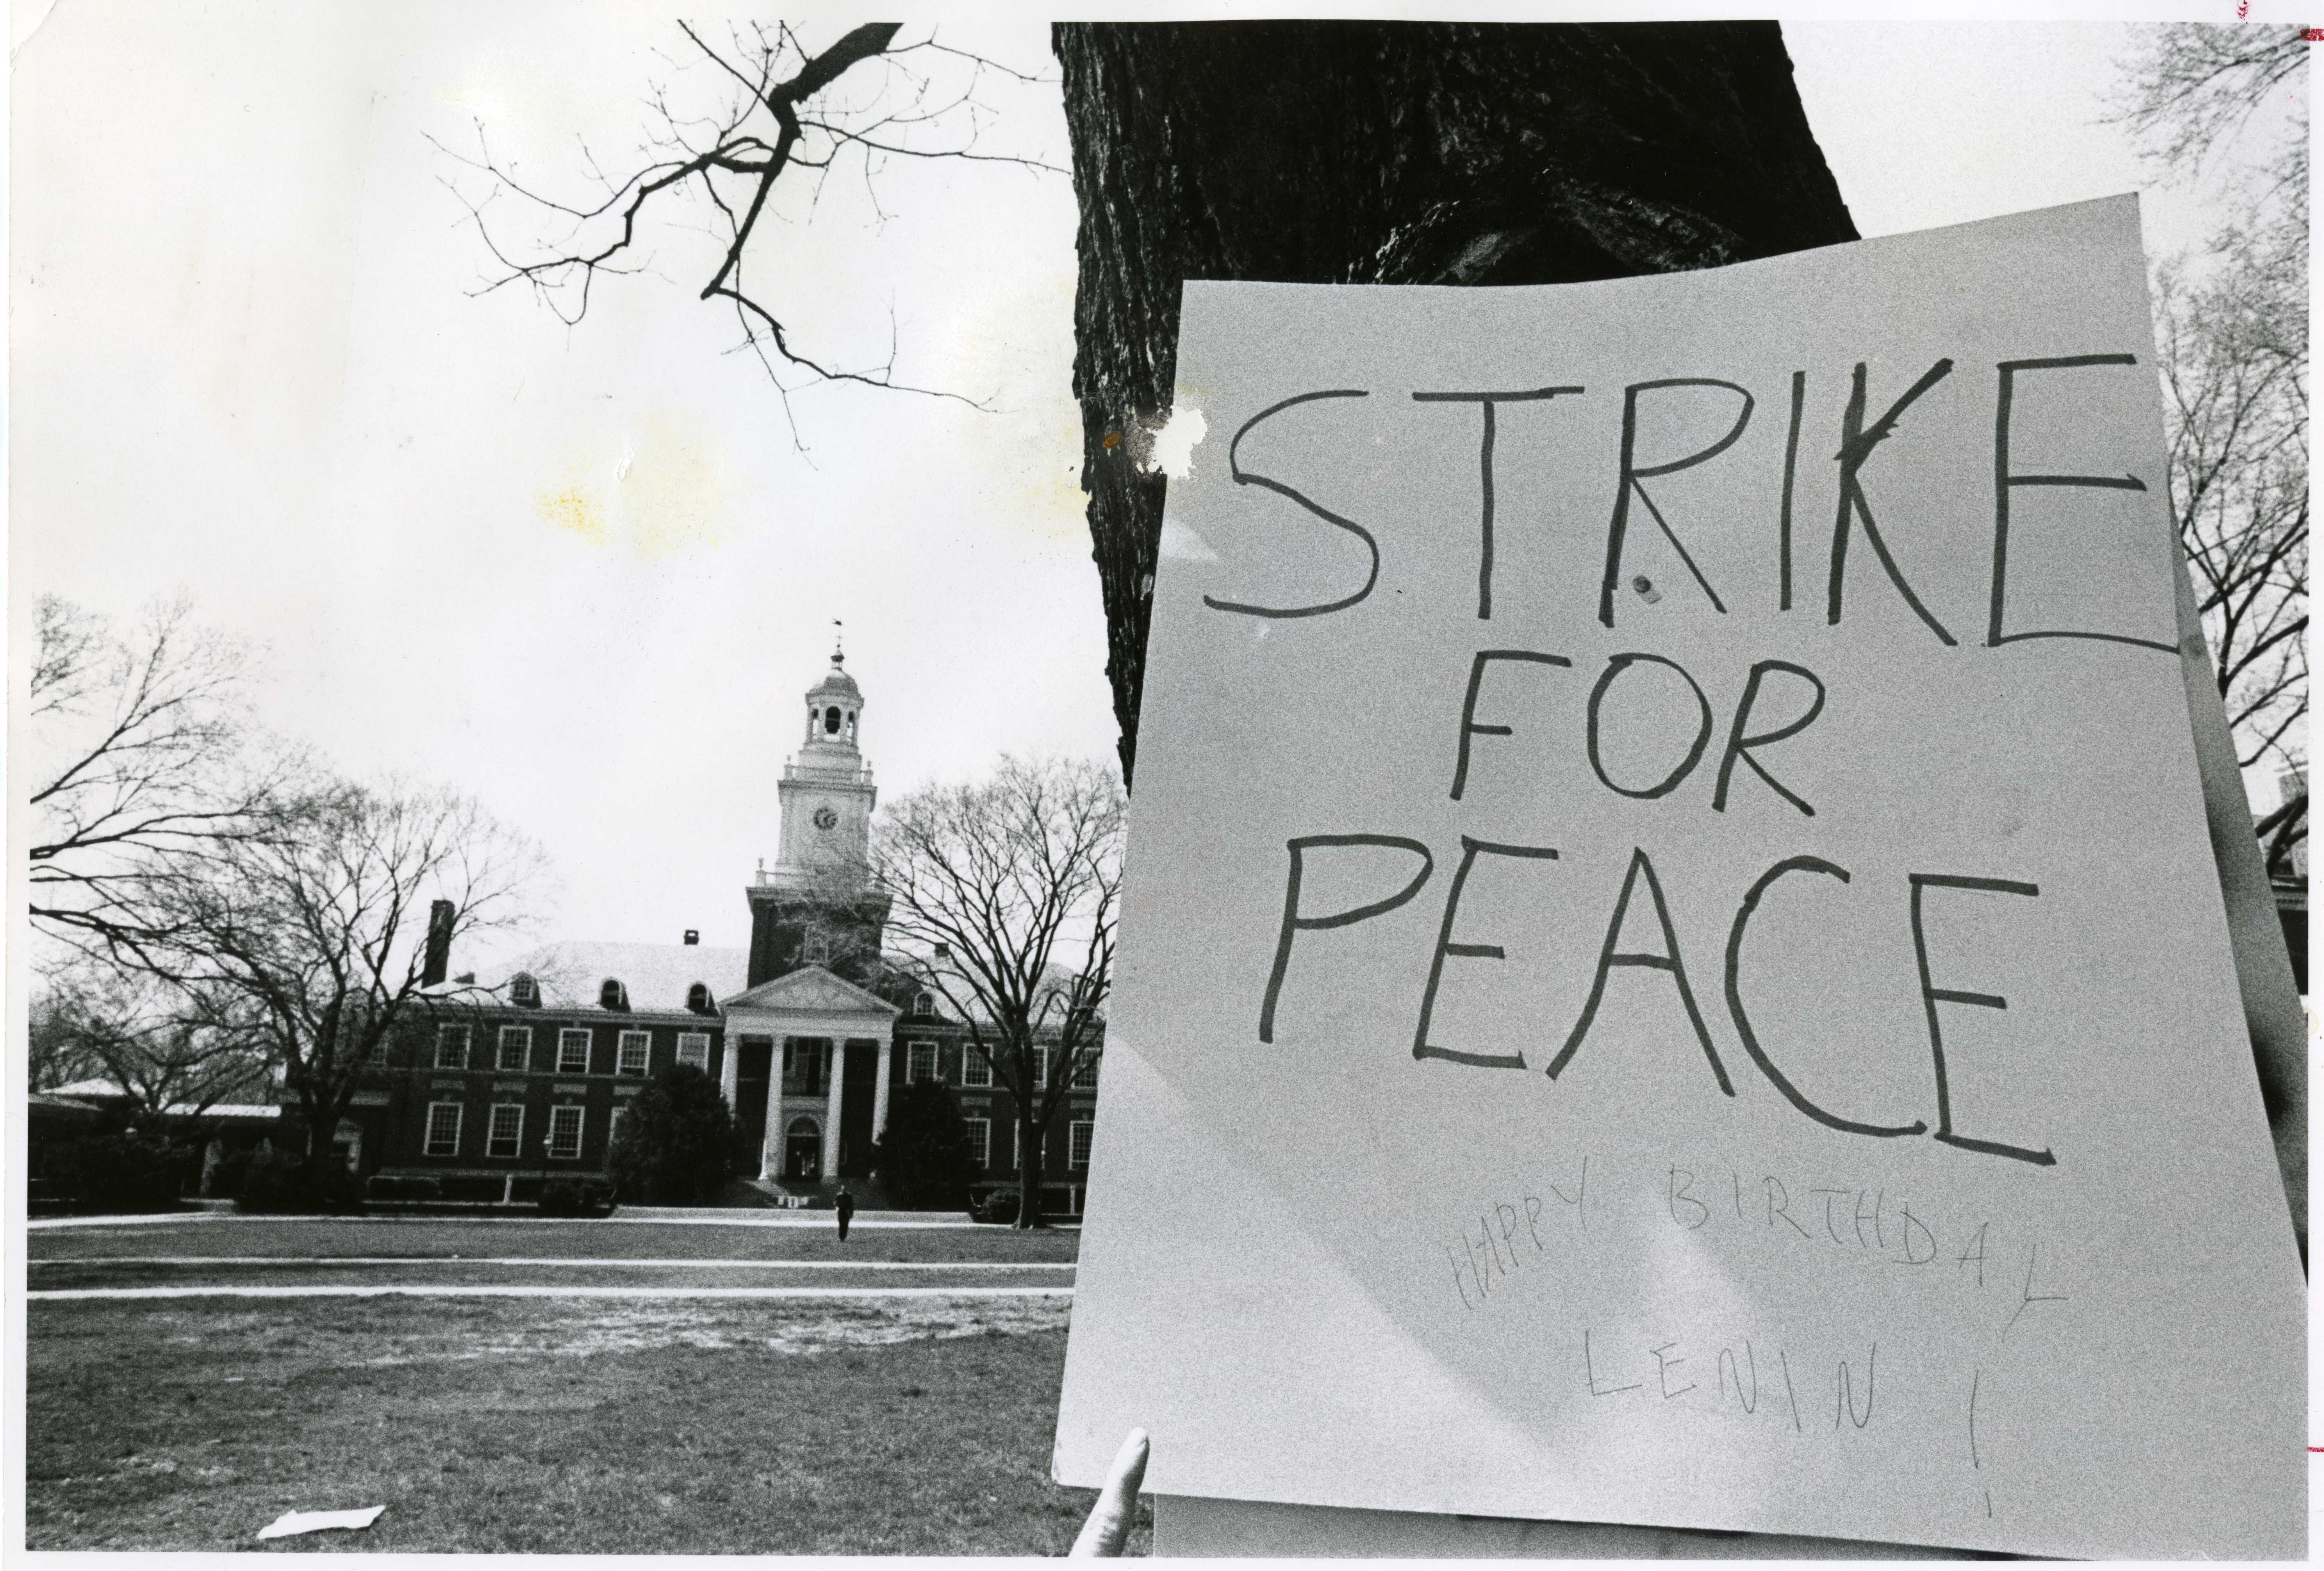 STRIKE
FOR
PEACE
HAPPY BIRTHDAY
LENIN!